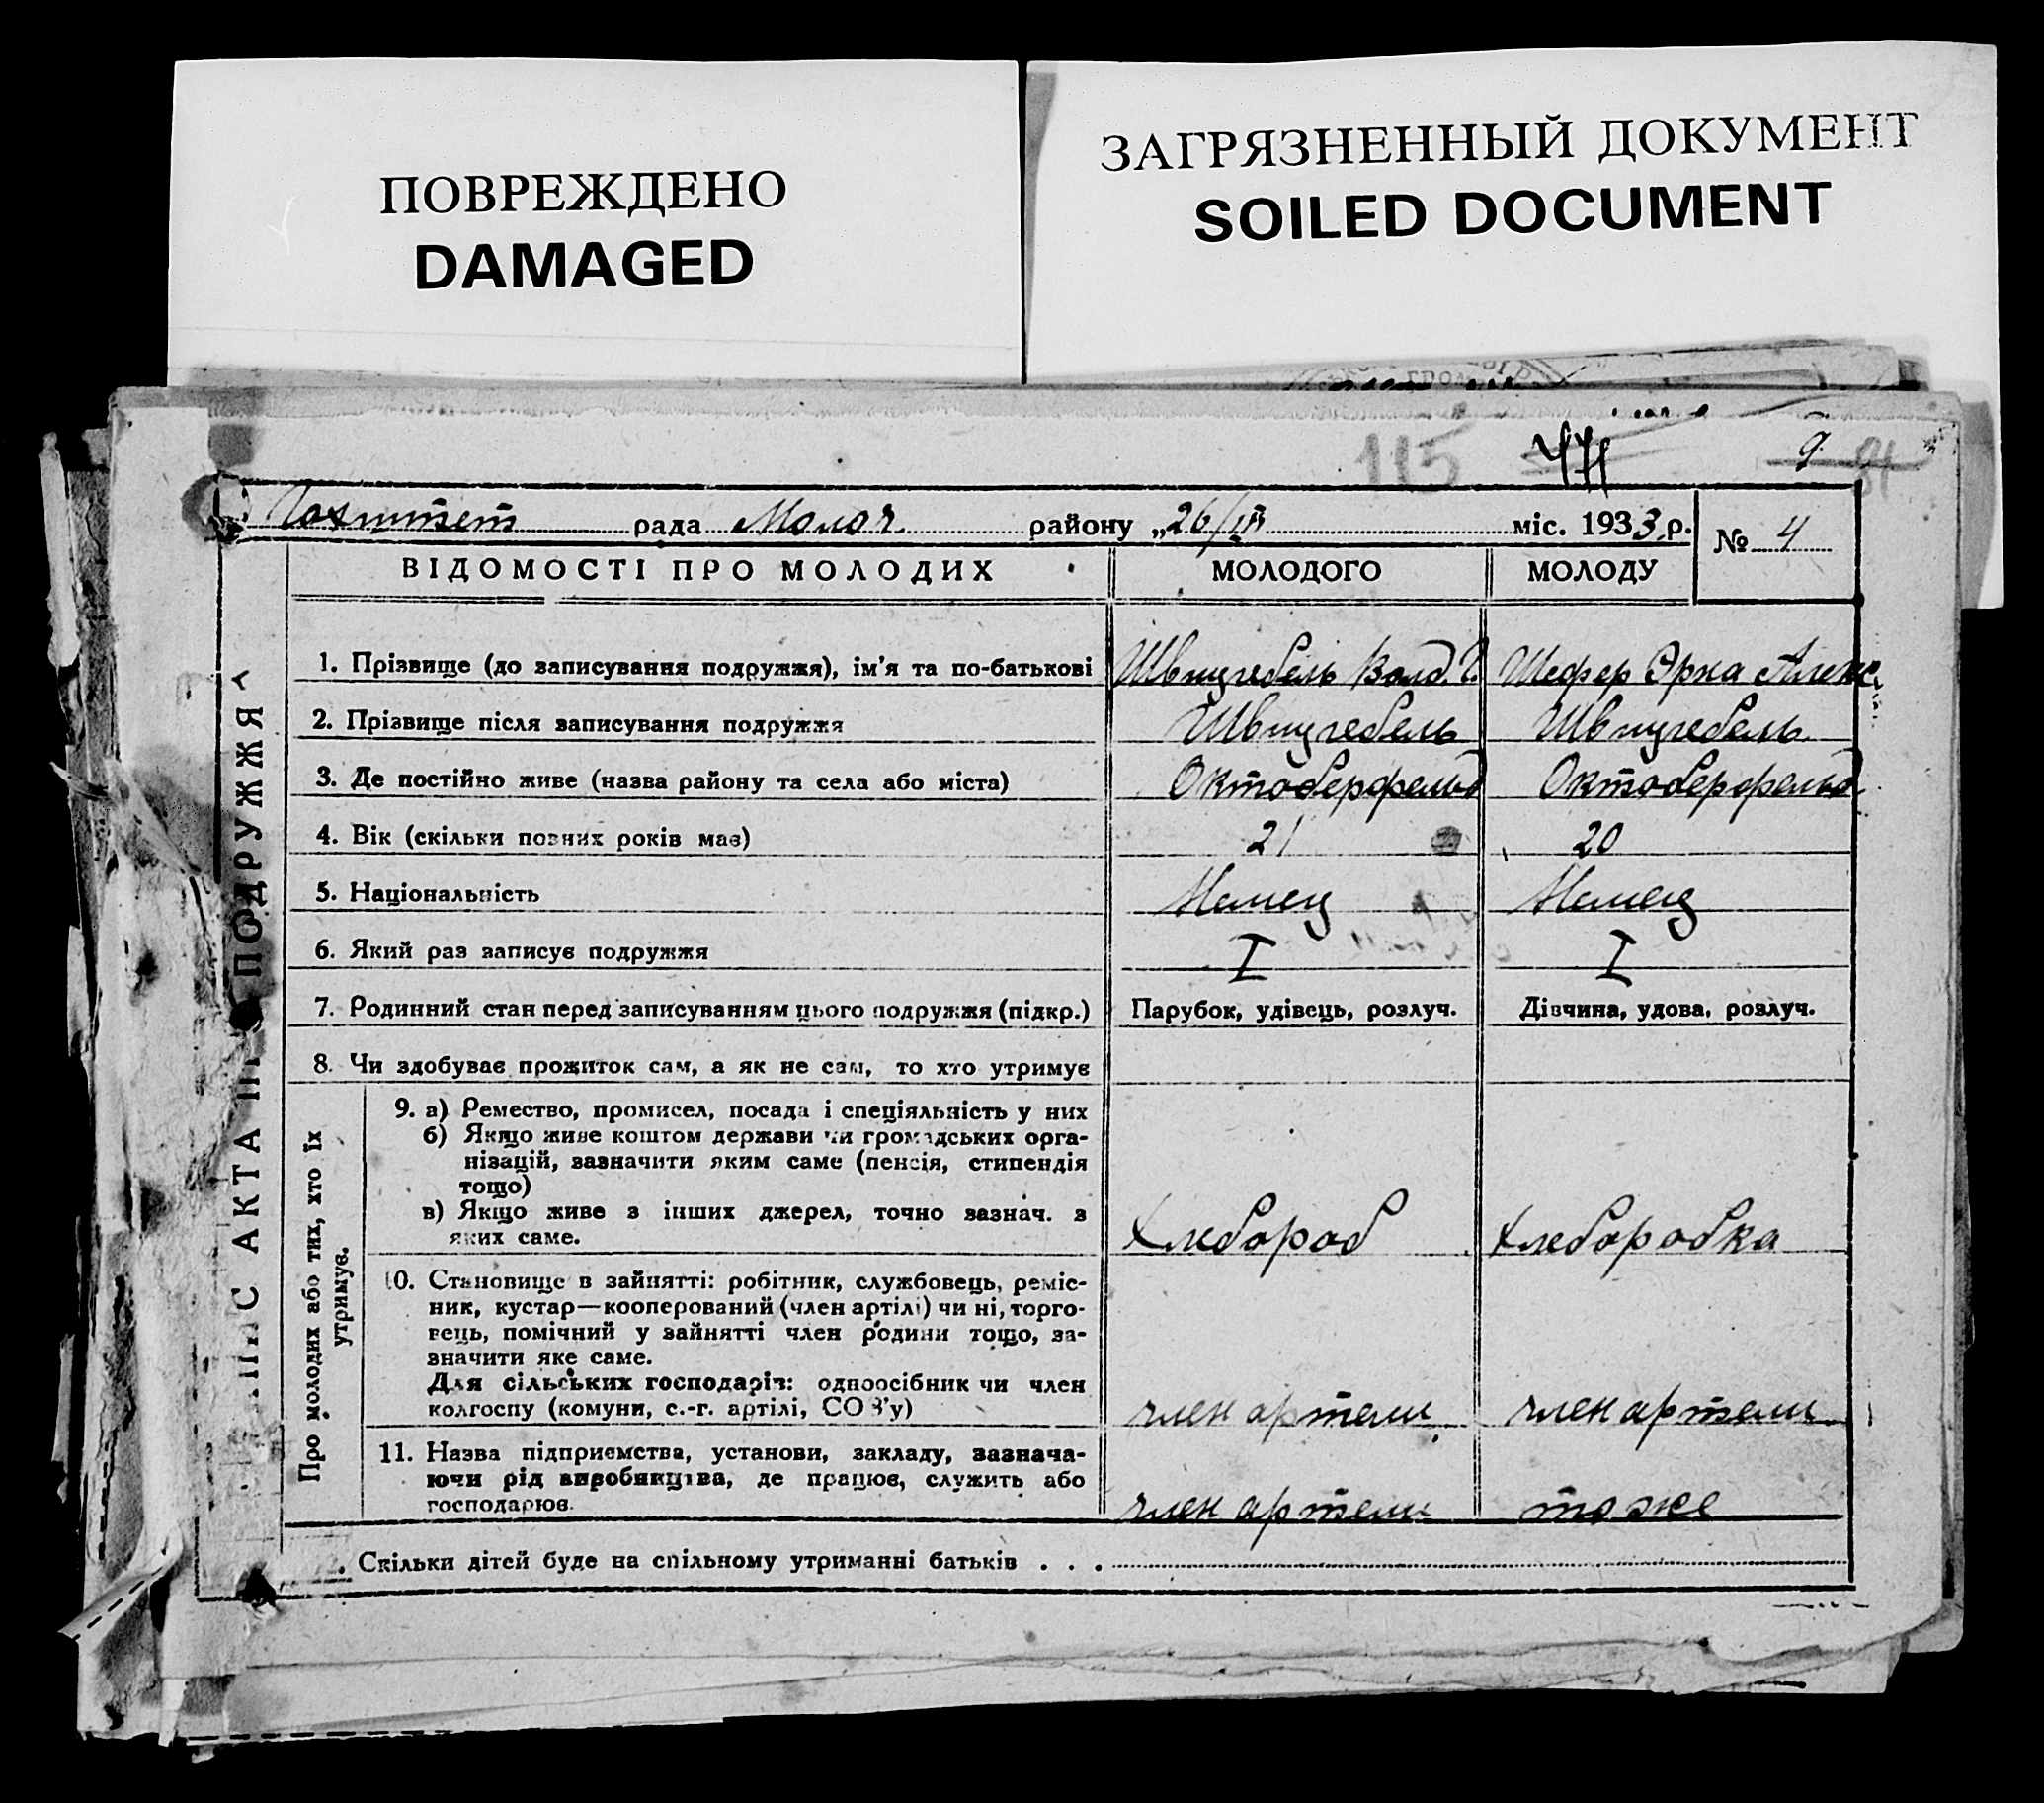 ПОВРЕЖДЕНО
DAMAGED
ЗАГРЯЗНЕННЫЙ ДОКУМЕНТ
SOILED DOCUMENT
115
9
81
рада Молоч. району „26/III міс. 1933 р.
№ 4
ПОДРУЖЖЯ
АКТА
ВІДОМОСТІ ПРО МОЛОДИХ МОЛОДОГО МОЛОДУ
1. Прізвище (до записування подружжя), ім'я та по-батькові Швицгебель Волд. Г. Шефер Эрна Алекс
2. Прізвище після записування подружжя Швицгебель Швицгебель
3. Де постійно живе (назва району та села або міста) Октоберфельд Октоберфельд
4. Вік (скільки повних років має) 21 20
5. Національність Немец Немец
6. Який раз записує подружжя I I
7. Родинний стан перед записуванням цього подружжя (підкр.) Парубок, удівець, розлуч. Дівчина, удова, розлуч.
8. Чи здобуває прожиток сам, а як не сам, то хто утримує
Про молодих або тих, хто їх
утримує.
9. а) Ремество, промисел, посада і спеціяльність у них
б) Якщо живе коштом держави чи громадських орга-
нізацій, зазначити яким саме (пенсія, стипендія
тощо)
в) Якщо живе з інших джерел, точно зазнач. з
яких саме.
Хлебороб Хлеборобка
10. Становище в зайнятті: робітник, службовець, реміс-
ник, кустар—кооперований (член артілі) чи ні, торго-
вець, помічний у зайнятті член родини тощо, за-
значити яке саме.
Для сільських господарів: одноосібник чи член
колгоспу (комуни, с.-г. артілі, СОЗ'у)
член артели член артели
11. Назва підприємства, установи, закладу, зазнача-
ючи рід виробництва, де працює, служить або
господарює.
член артели тоже
Скільки дітей буде на спільному утриманні батьків . . .